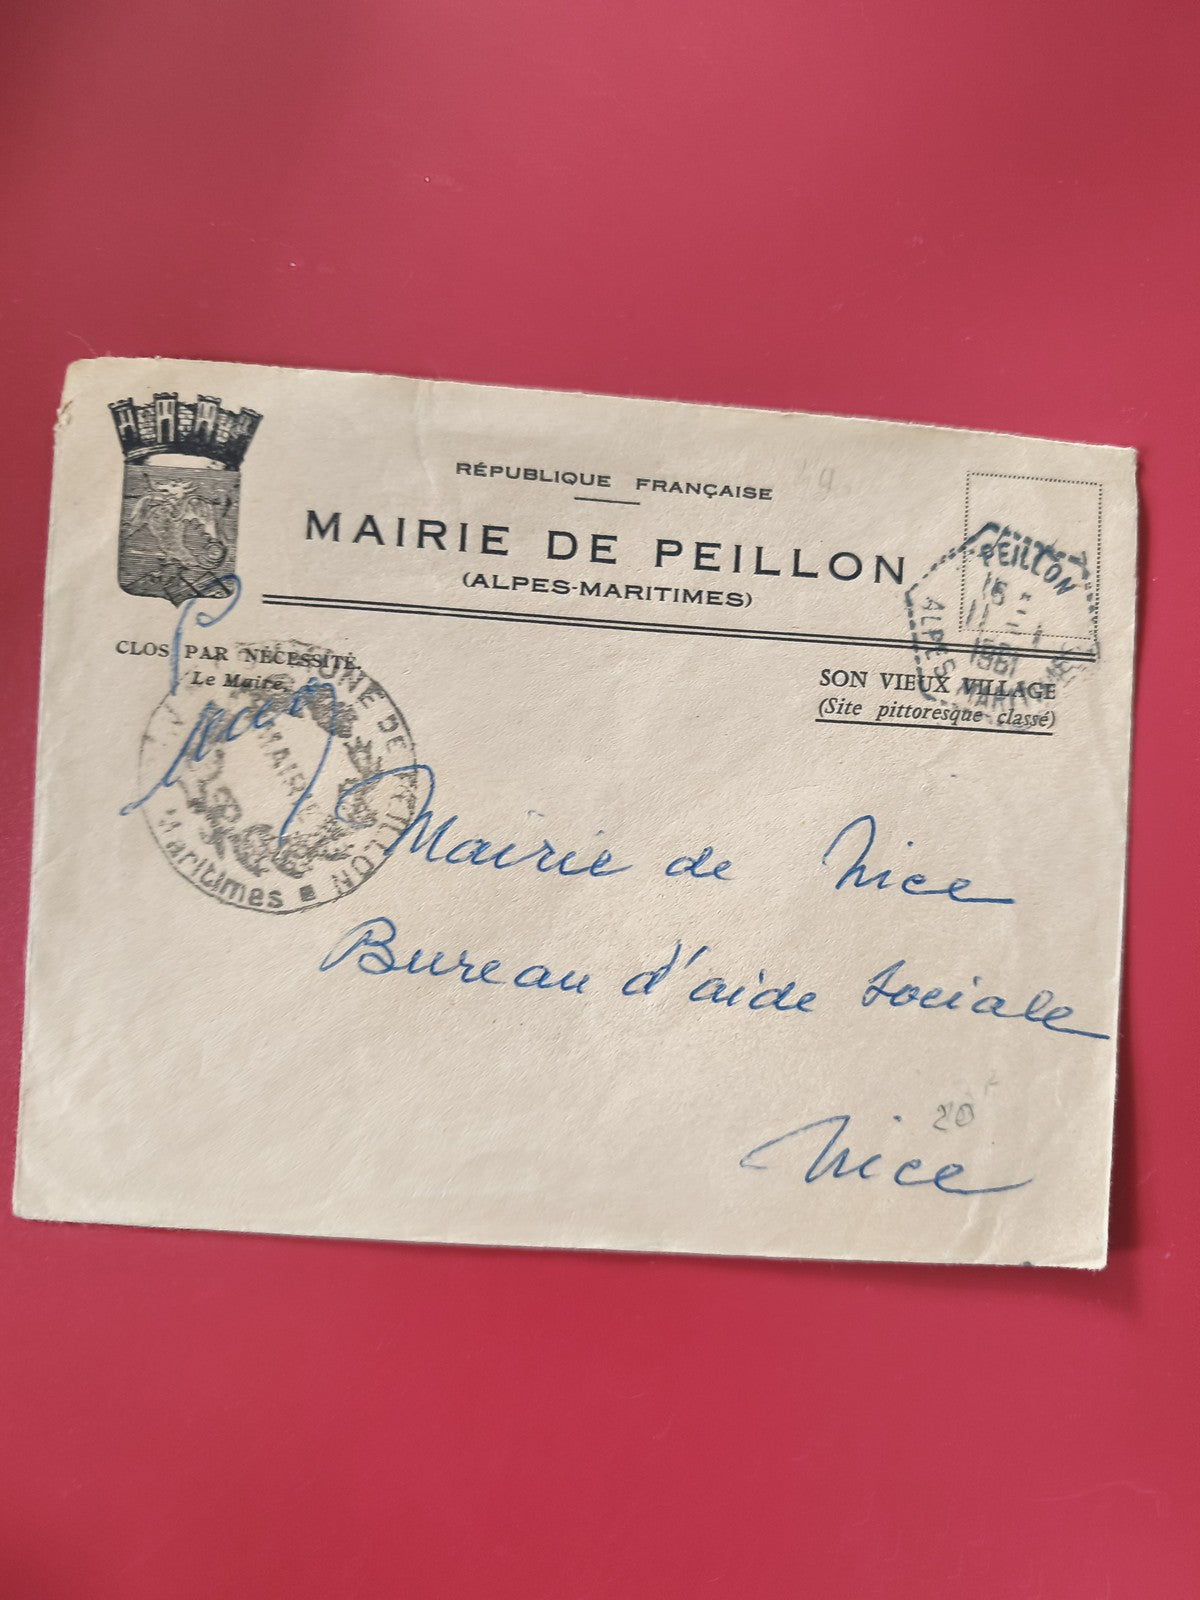 RÉPUBLIQUE FRANÇAISE
MAIRIE DE PEILLON
(ALPES-MARITIMES)
CLOS PAR NÉCESSITÉ.
Le Maire,
COMMUNE DE PEILLON
MAIRIE
Maritimes
PEILLON
15
1961
ALPES MARITIMES
SON VIEUX VILLAGE
(Site pittoresque classé)
Mairie de Nice
Bureau d'aide Sociale
Nice
20